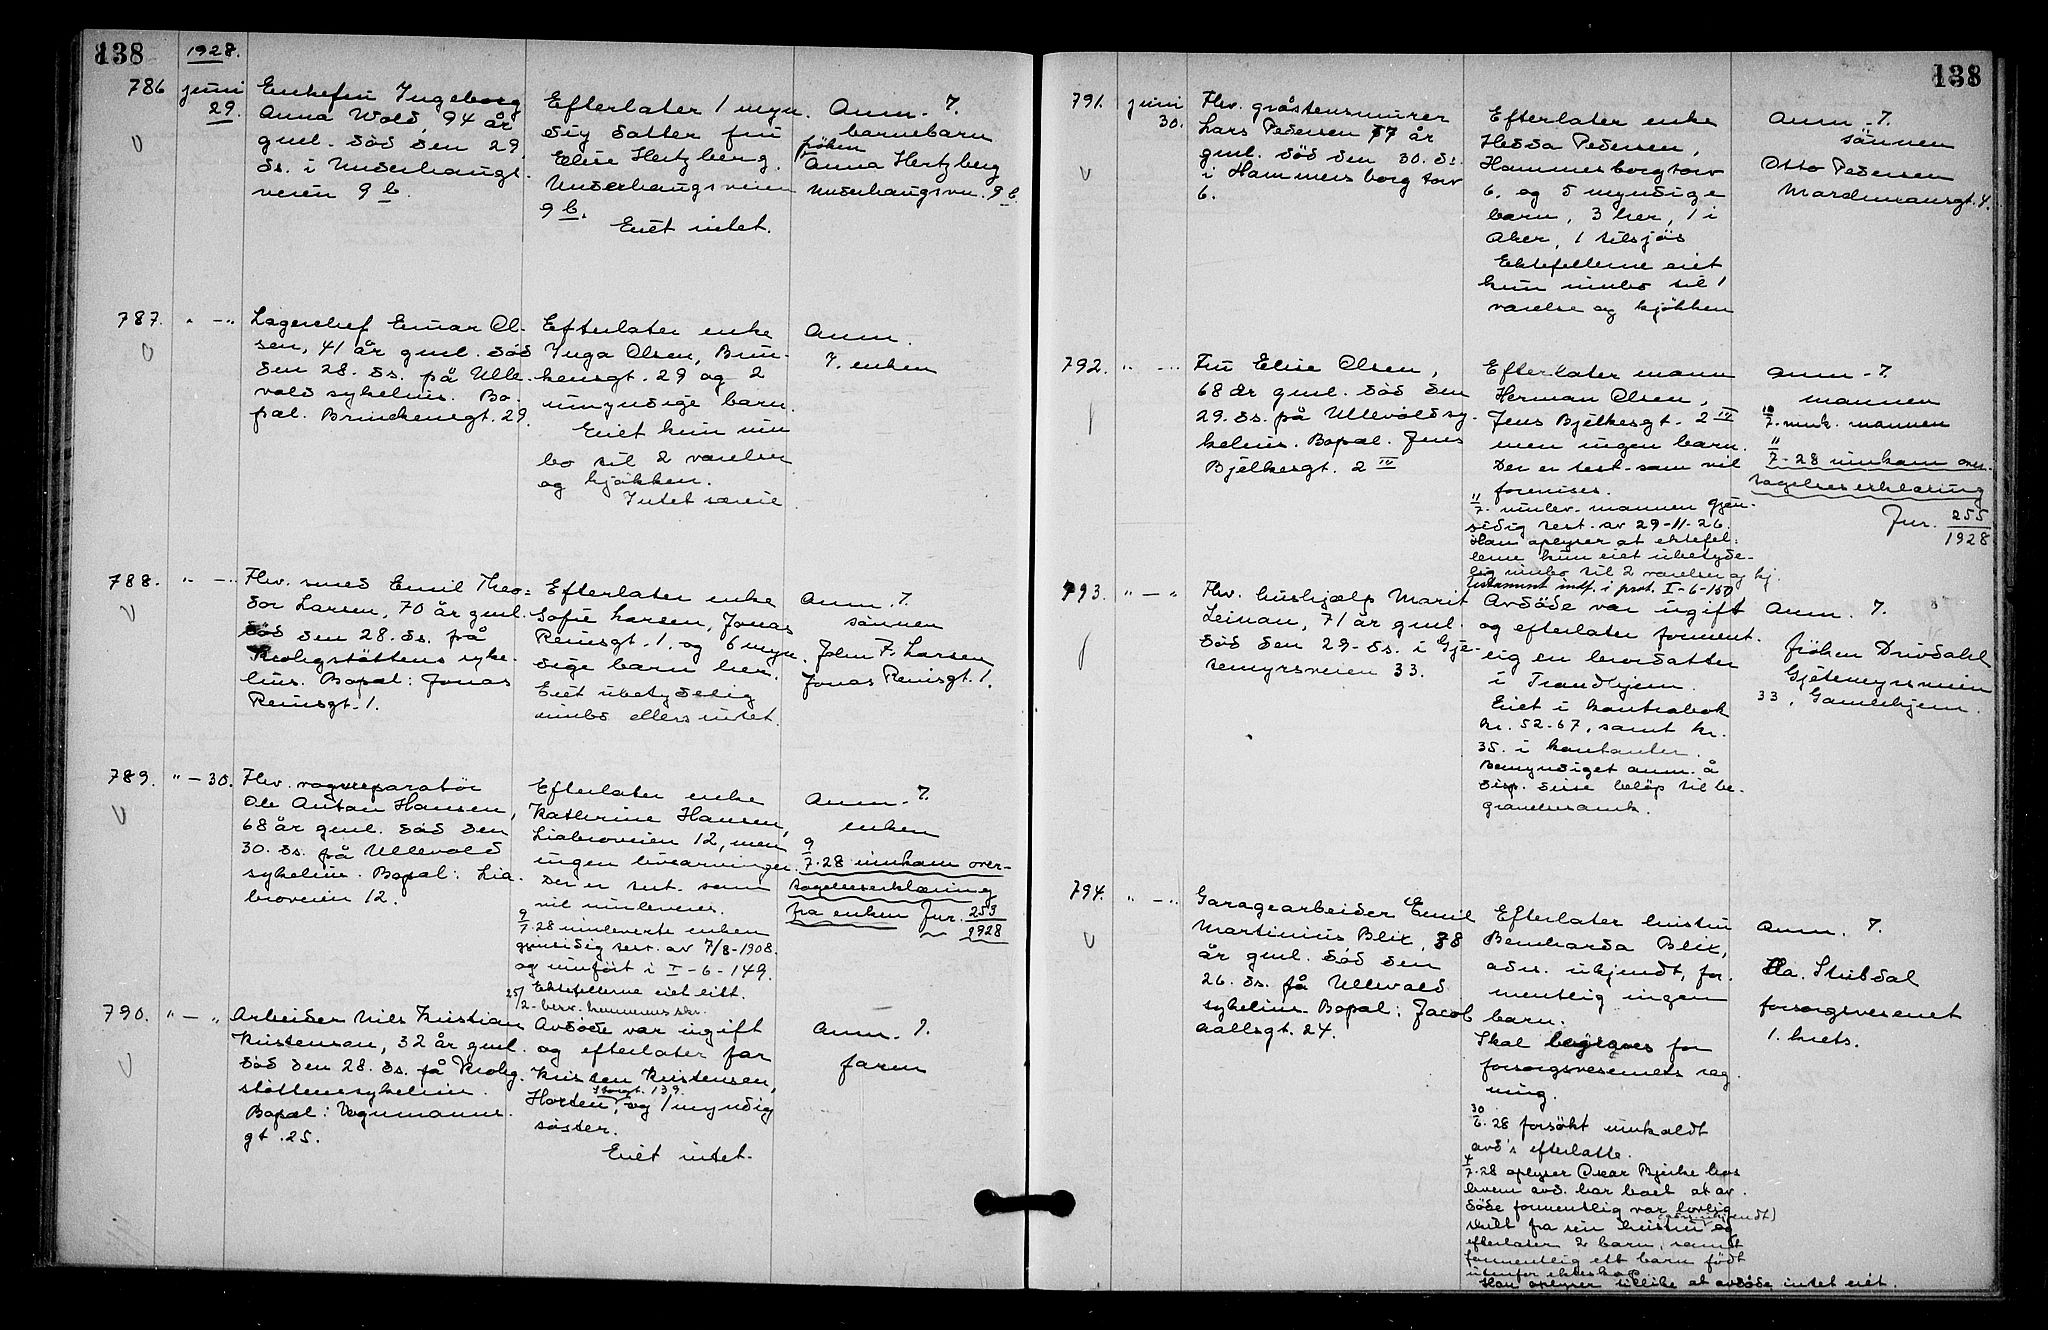 138
1928.
786
juni
29.
Enkefru Ingeborg
Anna Wold, 94 år
gml. död den 29.
ds. i Underhaugs-
veien 9 b.
Efterlater 1 myn-
dig datter fru
Elise Hertzberg.
Underhaugsveien
9 b.
Eiet intet.
Anm. ?.
barnebarn
fröken
Anna Hertzberg
Underhaugsvn. 9 b.
787.
" - "
Lagerchef Einar Ol-
sen, 41 år gml. död
den 28. ds. på Ulle-
vold sykehus. Bo-
pæl. Brinckensgt. 29.
Efterlater enke
Inga Olsen, Brin-
kensgt. 29 og 2
umyndige barn.
Eiet kun inn
bo til 2 værelser
og kjökken.
Intet særeie
Anm.
?. enken
788.
" - "
Fhv. smed Emil Theo=
dor Larsen, 70 år gml.
död den 28. ds. på
Krohgstöttens syke-
hus. Bopæl: Jonas
Reinsgt. 1.
Efterlater enke
Sofie Larsen, Jonas
Reinsgt. 1. og 6 myn-
dige barn her.
Eiet ubetydelig
innbo ellers intet.
Anm. ?.
sönnen
John F. Larsen
Jonas Reinsgt. 1.
789.
" - 30.
Fhv. vognreparatör
Ole Anton Hansen,
68 år gml. död den
30. ds. på Ullevold
sykehus. Bopæl: Lia-
broveien 12.
Efterlater enke
Kathrine Hansen,
Liabroveien 12, men
ingen livsarvinger.
Der er test. som
vil innleveres.
9/7-28 innleverte enken
gjensidig test. av 7/8-1908.
og innfört i I-6-149.
Ektefellerne eiet litt.
25/2- bero.
Anm. ?.
enken
9/7-28 innkom over-
tagelseserklæring
fra enken Jnr. 253/1928
790.
" - "
Arbeider Nils Kristian
Kristensen, 32 år gml.
död den 28. ds. på Krohg-
stöttens sykehus.
Bopæl: Vognmanns-
gt. 25.
Avdöde var ugift
og efterlater far
Kristen Kristensen,
Storgt. 139.
Horten, og 1 myndig
söster.
Eiet intet.
Anm. ?.
faren
138
791.
juni
30.
Fhv. gråstensmurer
Lars Pedersen 77 år
gml. död den 30. ds.
i Hammersborg torv
6.
Efterlater enke
Hedda Pedersen,
Hammersborg torv
6. og 5 myndige
barn, 3 her, 1 i
Aker, 1 tilsjös
Ektefellerne eiet
kun innbo til 1
værelse og kjökken
Anm. ?.
sönnen
Otto Pedersen
Mardmansgt. 4.
792.
" - "
Fru Elise Olsen,
68 år gml. död den
29. ds. på Ullevold sy-
kehus. Bopæl. Jens
Bjelkesgt. 2 IV
Efterlater mann
Herman Olsen,
Jens Bjelkesgt. 2 IV
men ingen barn.
Der er test. som vil
forevises.
11/7- innlev. mannen gjen-
sidig test. av 29-11-26.
Han oplyser at ektefel-
lerne kun eiet ubetyde-
lig innbo til 2 værelser og kj.
Testament indf. i prot. I-6-150
Anm. ?.
mannen
10/7. innk. mannen
11/7-28 innkom over-
tagelseserklæring
Jnr. 255/1928
793.
" - "
Fhv. hushjælp Marit
Leinan, 71 år gml.
död den 29. ds. i Gje-
temyrsveien 33.
Avdöde var ugift
og efterlater forment-
lig en brordatter
i Trondhjem.
Eiet i kontrabok
kr. 52-67, samt kr.
35. i kontanter.
Bemyndiget anm. å
disp. disse belöp til be-
gravelsesomk.
Anm. ?.
fröken Drivdahl
Gjetemyrsveien
33, Gamlehjem.
794.
" - "
Garagearbeider Emil
Martinius Blix, 38
år gml. död den
26. ds. på Ullevold
sykehus. Bopæl: Jacob
Aallsgt. 24.
Efterlater hustru
Bernharda Blix,
adr. ukjendt, for-
mentlig ingen
barn.
Skal begraves for
forsorgsvesenets reg-
ning.
30/6.28 forsökt innkaldt
avd's efterlatte.
4/7-28 oplyser Oscar Bjerke hos
hvem avd. har boet at av-
döde formentlig var lovlig
skilt fra sin hustru og
efterlater 2 barn, samt
formentlig ett barn födt
utenfor ekteskap.
Han oplyser tillike at avdöde intet eiet.
Anm. ?.
Stubdal
forsorgsvesenet
1. krets.